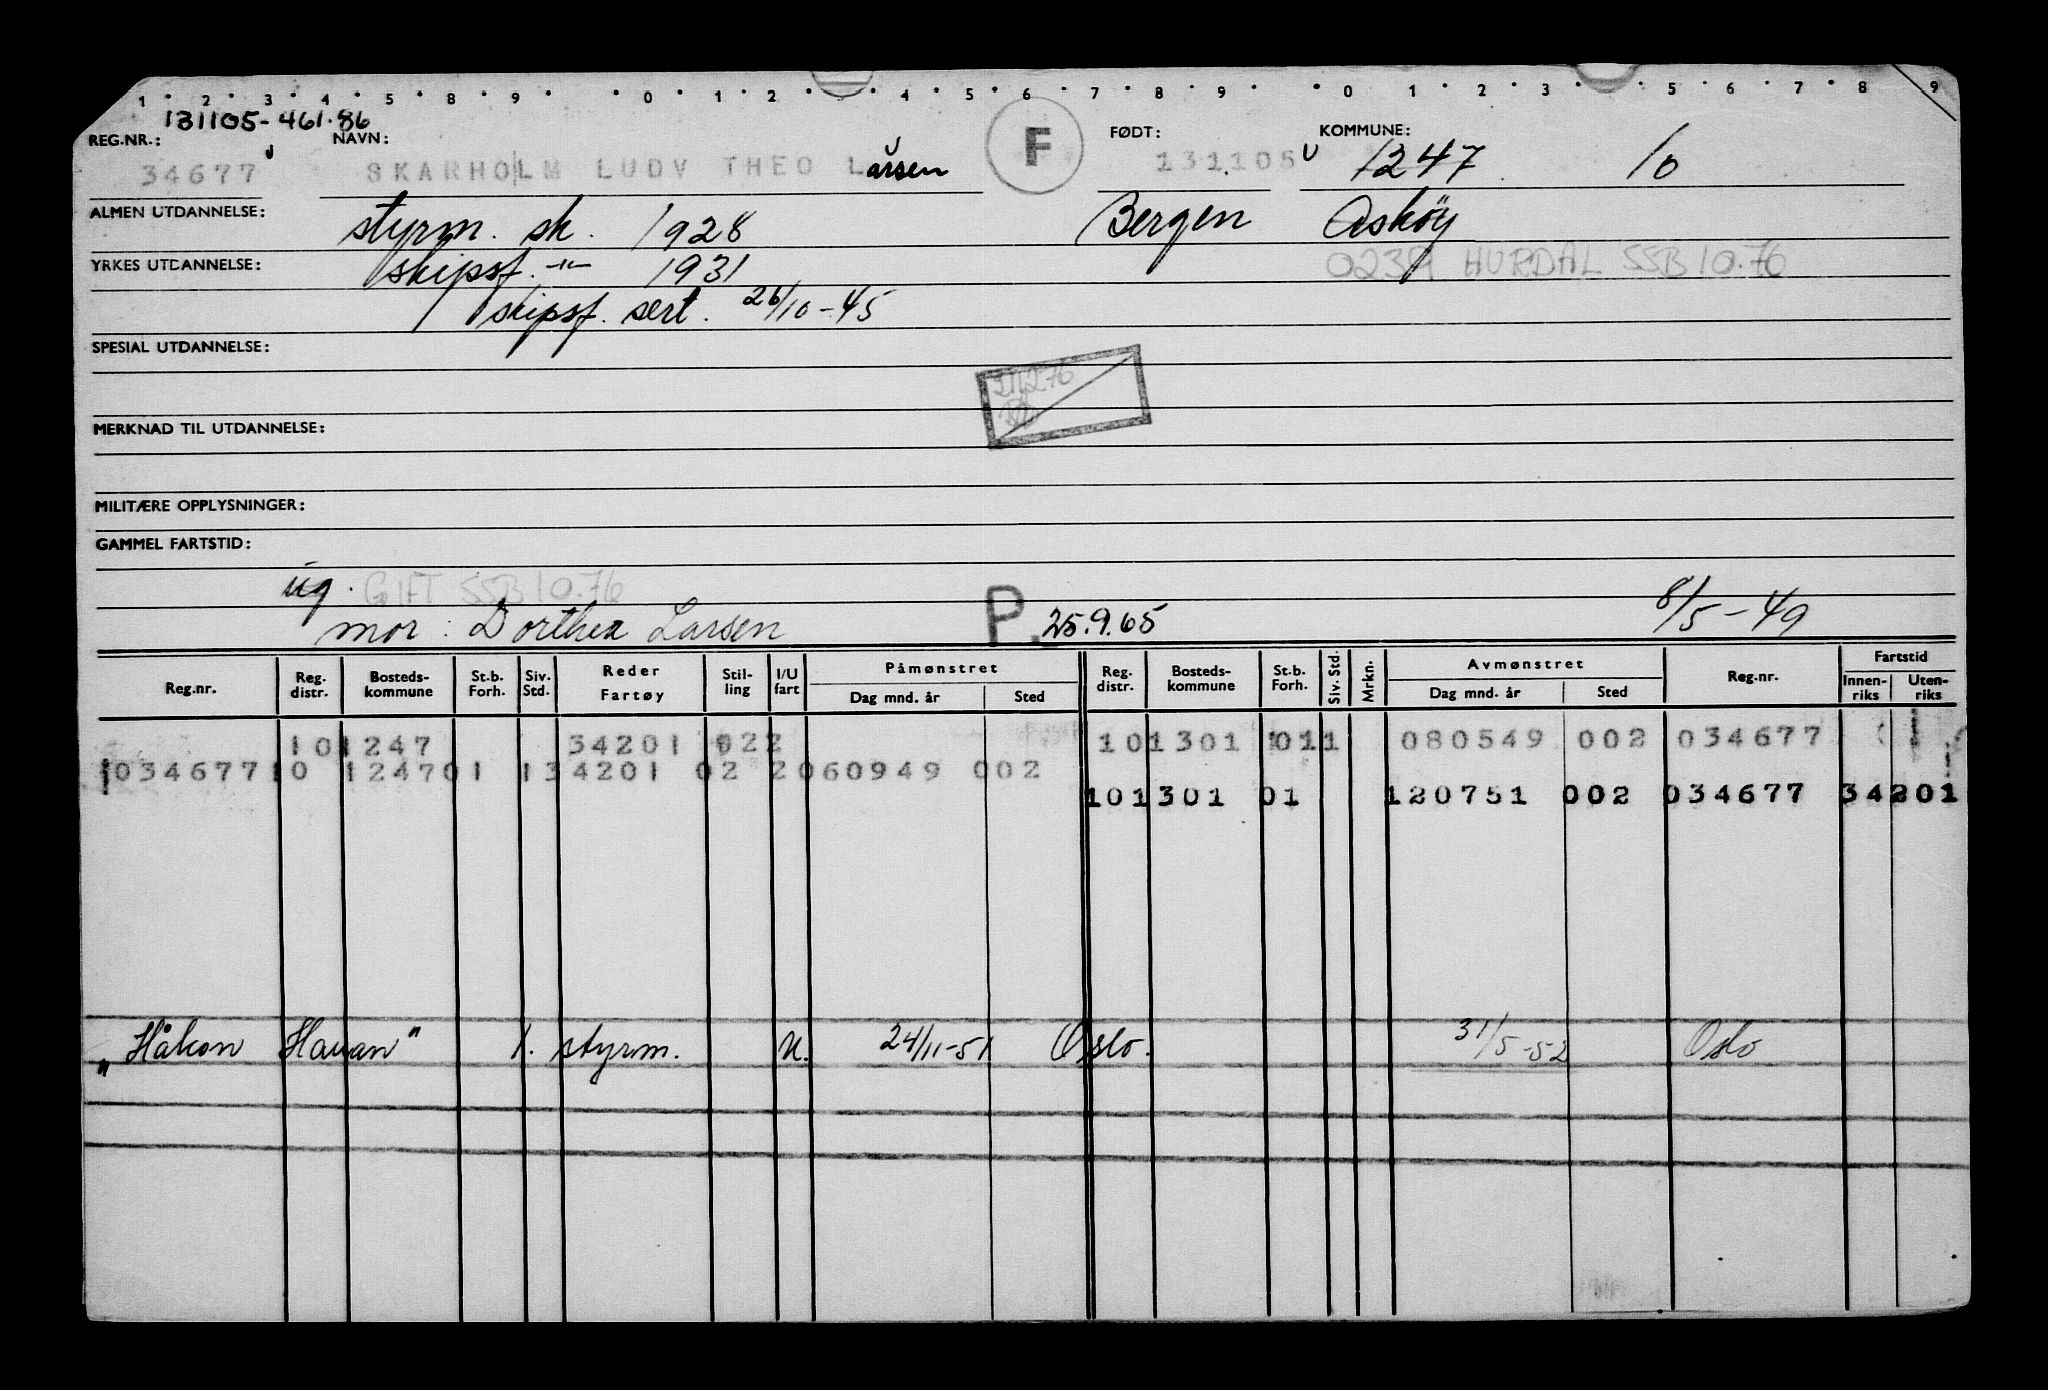 1 2 3 4 5 8 9 0 1 2 4 5 6 7 8 9 0 1 2 3 5 6 7 8 9
131105-461.86
REG.NR.: NAVN: F FØDT: KOMMUNE:
34677 SKARHOLM LUDV THEO Larsen 131105 1247 10
ALMEN UTDANNELSE: styrm. sk. 1928 Bergen Askøy
YRKES UTDANNELSE: skipsf. -"- 1931 0239 HURDAL SSB 10.76
skipsf. sert. 26/10-45
SPESIAL UTDANNELSE:
MERKNAD TIL UTDANNELSE:
MILITÆRE OPPLYSNINGER:
GAMMEL FARTSTID:
ug. GIFT SSB 10.76
mor: Dorthea Larsen P. 25.9.65 8/5-49
Reg.nr. Reg. distr. Bosteds-kommune St.b. Forh. Siv. Std. Reder Fartøy Stil-ling I/U fart Påmønstret Dag mnd. år Sted Reg. distr. Bosteds-kommune St.b. Forh. Siv. Std. Mrkn. Avmønstret Dag mnd. år Sted Reg.nr. Fartstid Innen-riks Uten-riks
101247 34201 022 101301 011 080549 002 034677
1034677 10 124701 134201 02 2060949 002
101301 01 120751 002 034677 34201
"Håkon Hauan" 1. styrm. u. 24/11-51 Oslo. 31/5-52 Oslo